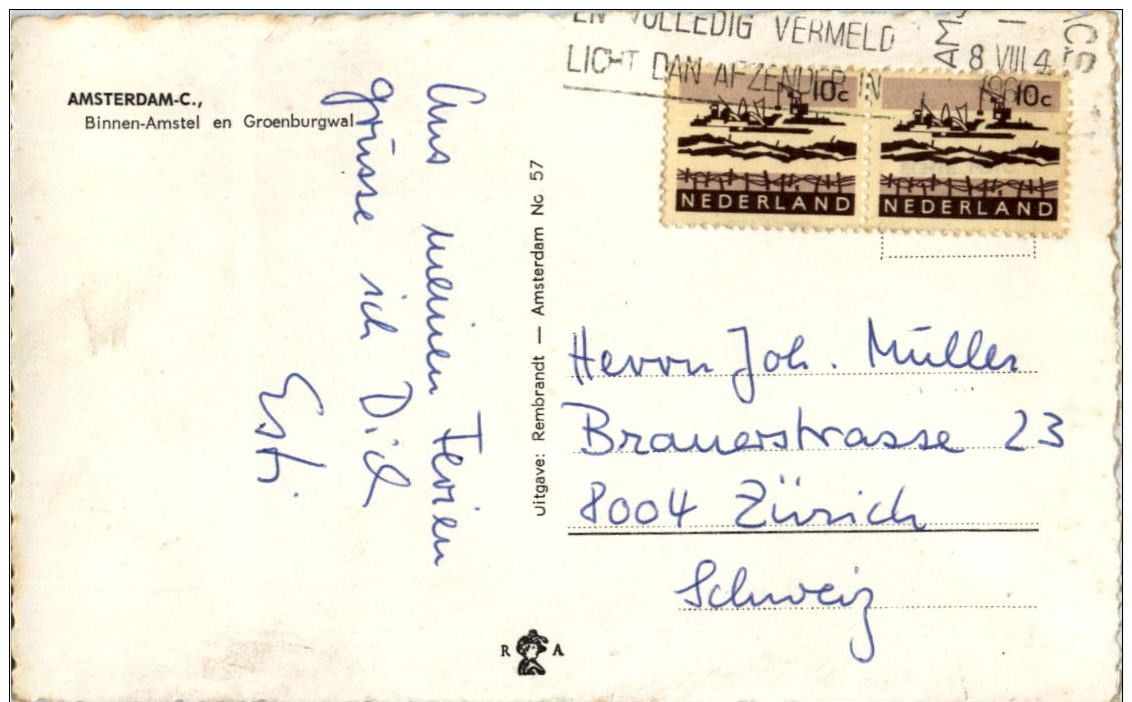 AMSTERDAM-C.,
Binnen-Amstel en Groenburgwal
Aus meinen Ferien
grüsse ich Dich
Esti.
Uitgave: Rembrandt — Amsterdam No. 57
R A
EN VOLLEDIG VERMELD
LICHT DAN AFZENDER IN
AMS
8 VIII 4
196
10c
NEDERLAND
10c
NEDERLAND
Herrn Joh. Müller
Brauerstrasse 23
8004 Zürich
Schweiz